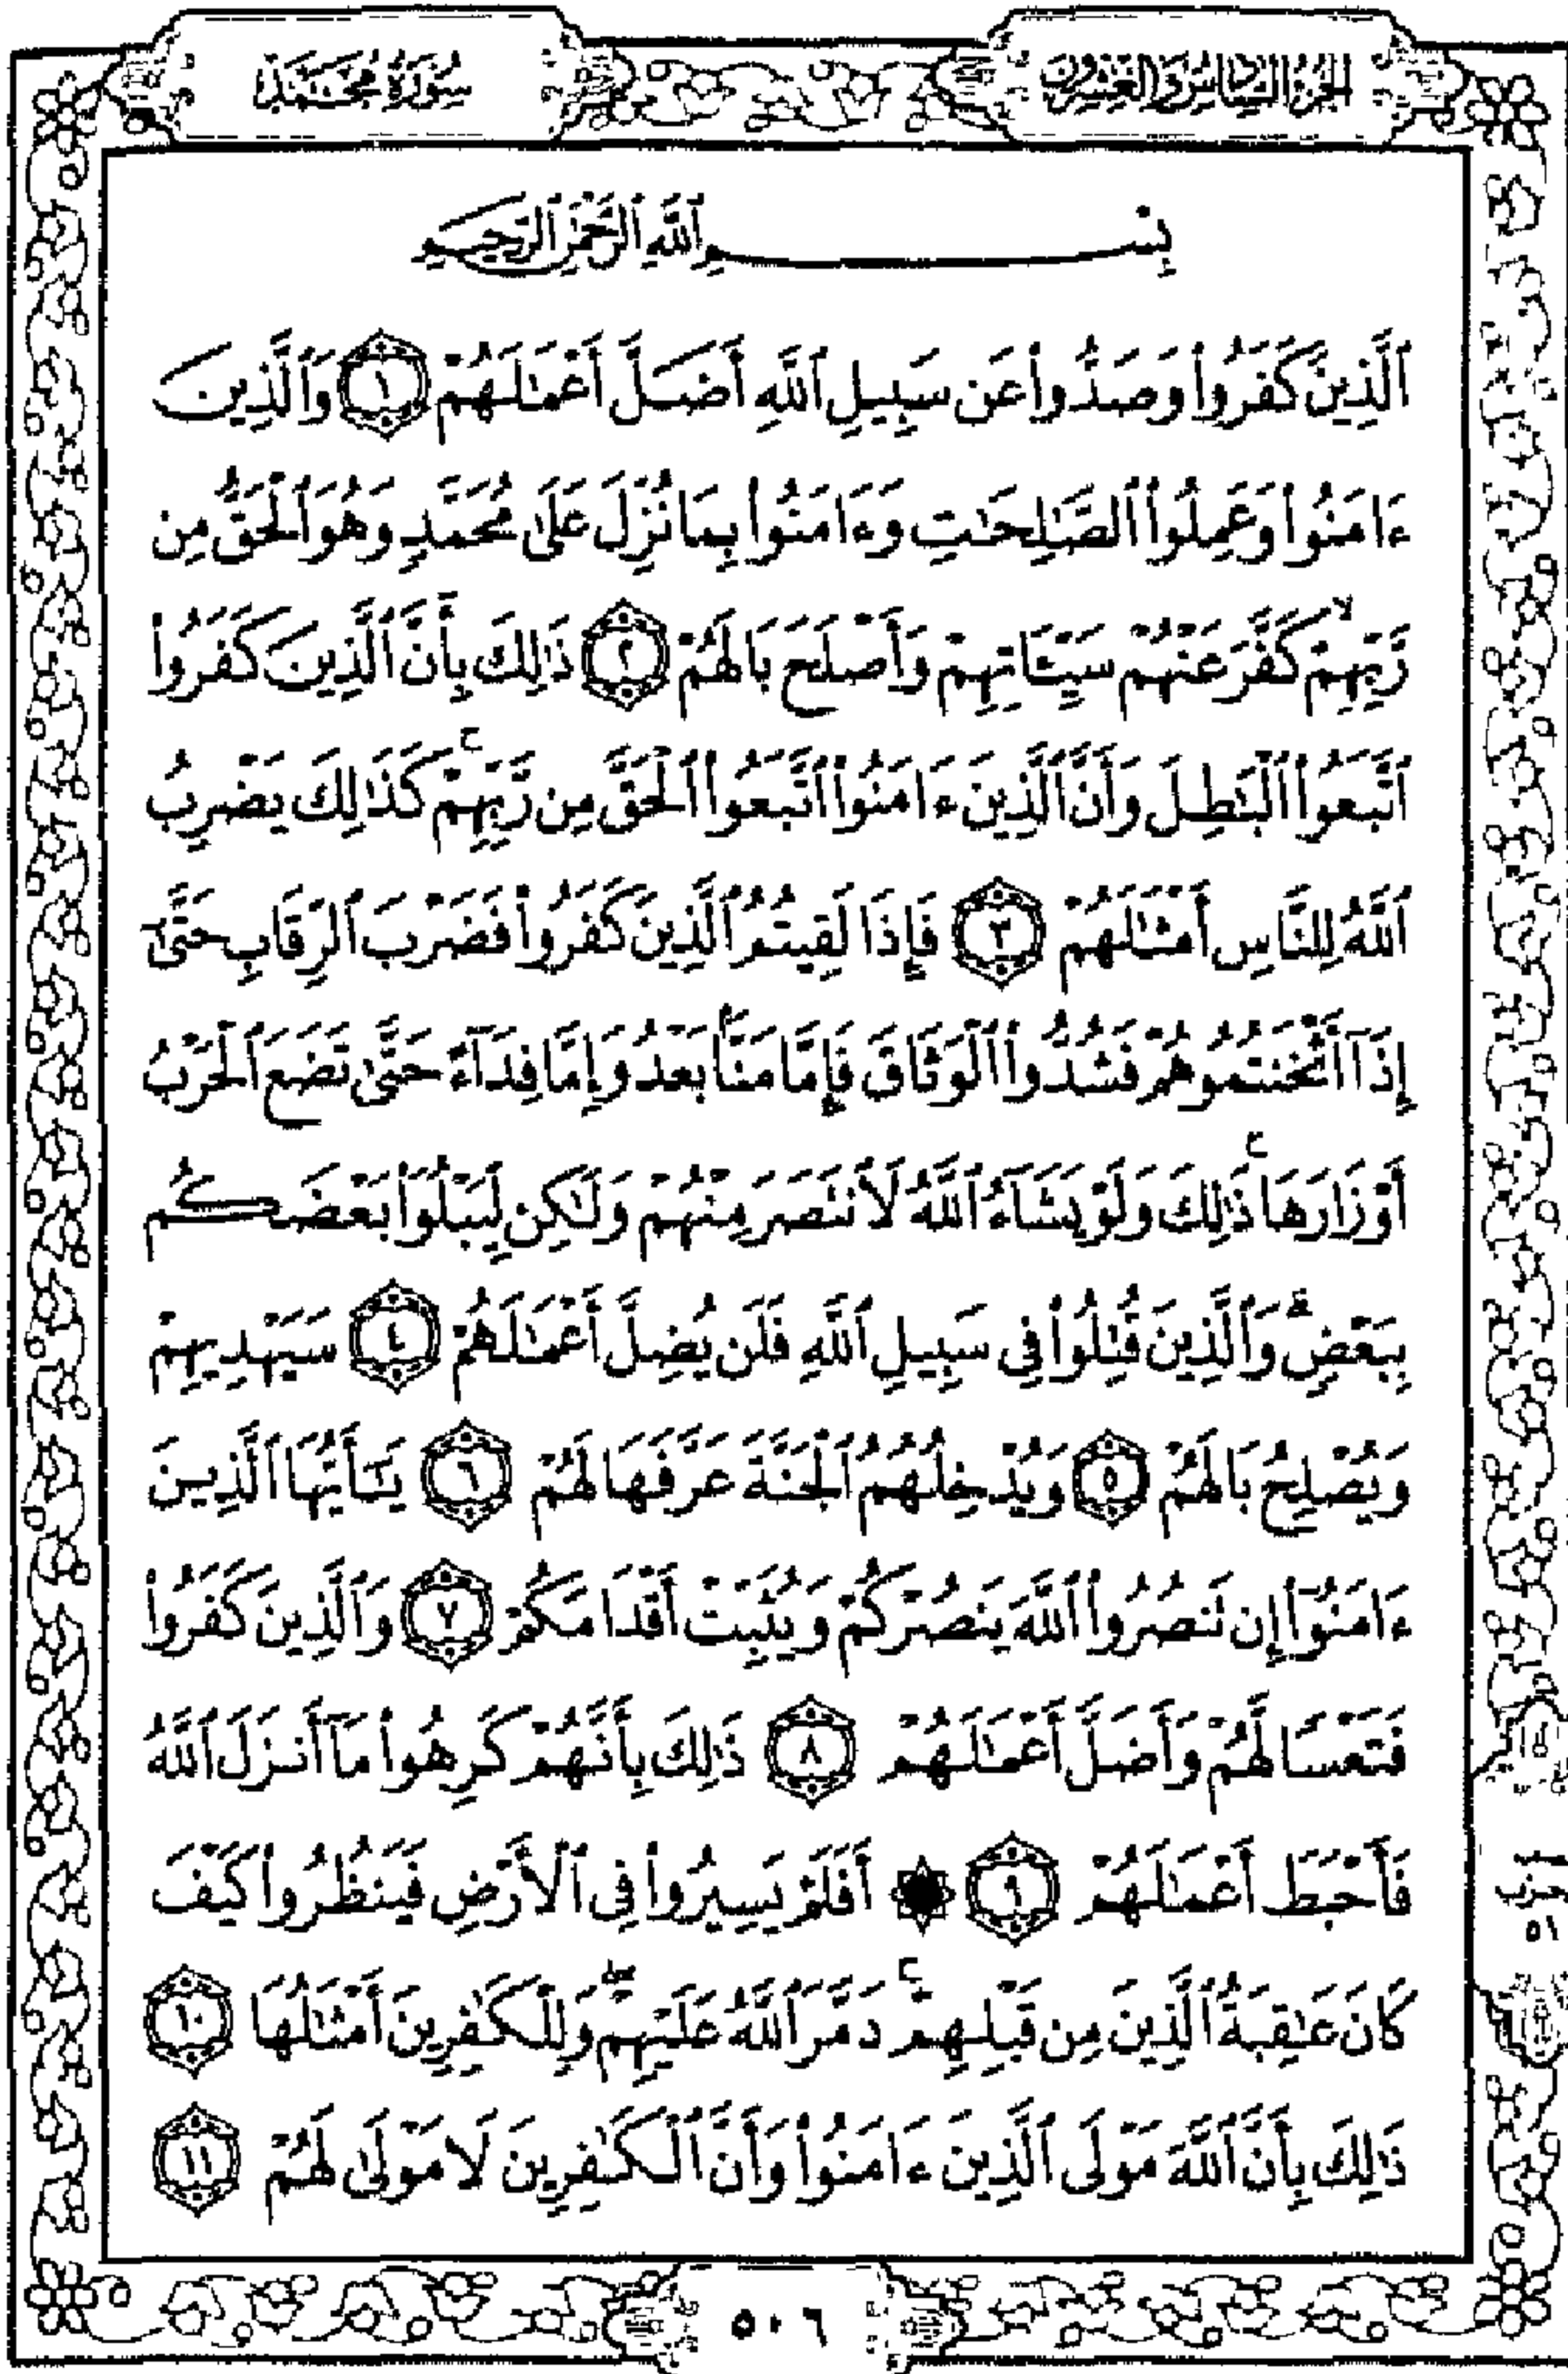 الجزء السادس والعشرون
سُورَةُ مُحَمَّدٍ
بِسْمِ ٱللَّهِ ٱلرَّحْمَٰنِ ٱلرَّحِيمِ
ٱلَّذِينَ كَفَرُوا۟ وَصَدُّوا۟ عَن سَبِيلِ ٱللَّهِ أَضَلَّ أَعْمَٰلَهُمْ ١ وَٱلَّذِينَ
ءَامَنُوا۟ وَعَمِلُوا۟ ٱلصَّٰلِحَٰتِ وَءَامَنُوا۟ بِمَا نُزِّلَ عَلَىٰ مُحَمَّدٍ وَهُوَ ٱلْحَقُّ مِن
رَّبِّهِمْ ۙ كَفَّرَ عَنْهُمْ سَيِّـَٔاتِهِمْ وَأَصْلَحَ بَالَهُمْ ٢ ذَٰلِكَ بِأَنَّ ٱلَّذِينَ كَفَرُوا۟
ٱتَّبَعُوا۟ ٱلْبَٰطِلَ وَأَنَّ ٱلَّذِينَ ءَامَنُوا۟ ٱتَّبَعُوا۟ ٱلْحَقَّ مِن رَّبِّهِمْ ۚ كَذَٰلِكَ يَضْرِبُ
ٱللَّهُ لِلنَّاسِ أَمْثَٰلَهُمْ ٣ فَإِذَا لَقِيتُمُ ٱلَّذِينَ كَفَرُوا۟ فَضَرْبَ ٱلرِّقَابِ حَتَّىٰٓ
إِذَآ أَثْخَنتُمُوهُمْ فَشُدُّوا۟ ٱلْوَثَاقَ فَإِمَّا مَنًّۢا بَعْدُ وَإِمَّا فِدَآءً حَتَّىٰ تَضَعَ ٱلْحَرْبُ
أَوْزَارَهَا ۚ ذَٰلِكَ وَلَوْ يَشَآءُ ٱللَّهُ لَٱنتَصَرَ مِنْهُمْ وَلَٰكِن لِّيَبْلُوَا۟ بَعْضَكُم
بِبَعْضٍ ۗ وَٱلَّذِينَ قُتِلُوا۟ فِى سَبِيلِ ٱللَّهِ فَلَن يُضِلَّ أَعْمَٰلَهُمْ ٤ سَيَهْدِيهِمْ
وَيُصْلِحُ بَالَهُمْ ٥ وَيُدْخِلُهُمُ ٱلْجَنَّةَ عَرَّفَهَا لَهُمْ ٦ يَٰٓأَيُّهَا ٱلَّذِينَ
ءَامَنُوٓا۟ إِن تَنصُرُوا۟ ٱللَّهَ يَنصُرْكُمْ وَيُثَبِّتْ أَقْدَامَكُمْ ٧ وَٱلَّذِينَ كَفَرُوا۟
فَتَعْسًا لَّهُمْ وَأَضَلَّ أَعْمَٰلَهُمْ ٨ ذَٰلِكَ بِأَنَّهُمْ كَرِهُوا۟ مَآ أَنزَلَ ٱللَّهُ
فَأَحْبَطَ أَعْمَٰلَهُمْ ٩ ۞ أَفَلَمْ يَسِيرُوا۟ فِى ٱلْأَرْضِ فَيَنظُرُوا۟ كَيْفَ
حزب ٥١
كَانَ عَٰقِبَةُ ٱلَّذِينَ مِن قَبْلِهِمْ ۚ دَمَّرَ ٱللَّهُ عَلَيْهِمْ ۖ وَلِلْكَٰفِرِينَ أَمْثَٰلُهَا ١٠
ذَٰلِكَ بِأَنَّ ٱللَّهَ مَوْلَى ٱلَّذِينَ ءَامَنُوا۟ وَأَنَّ ٱلْكَٰفِرِينَ لَا مَوْلَىٰ لَهُمْ ١١
٥٠٦